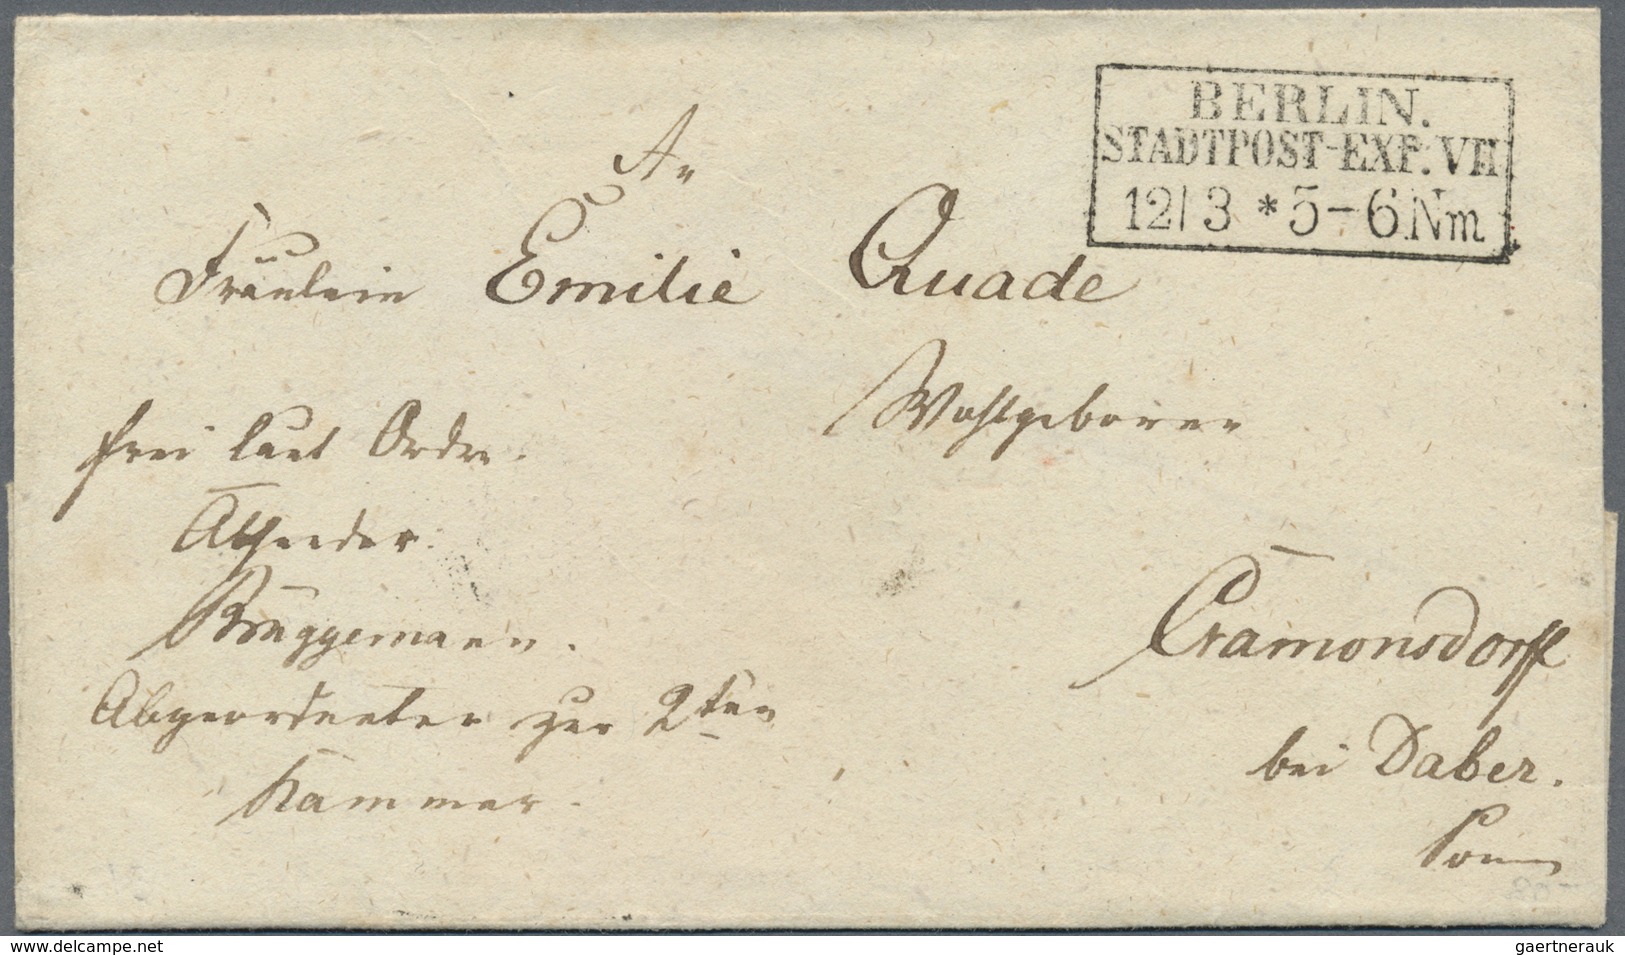 BERLIN.
STADTPOST-EXP. VII
12/3 * 5-6 Nm
An
Fräulein Emilie Quade
Wohlgeboren
frei laut Ordre.
Brüggemann.
Abgeordneter zur 2ten
Kammer.
Cramonsdorff
bei Daber.
Pom
www.delcampe.net
gaertnerauk